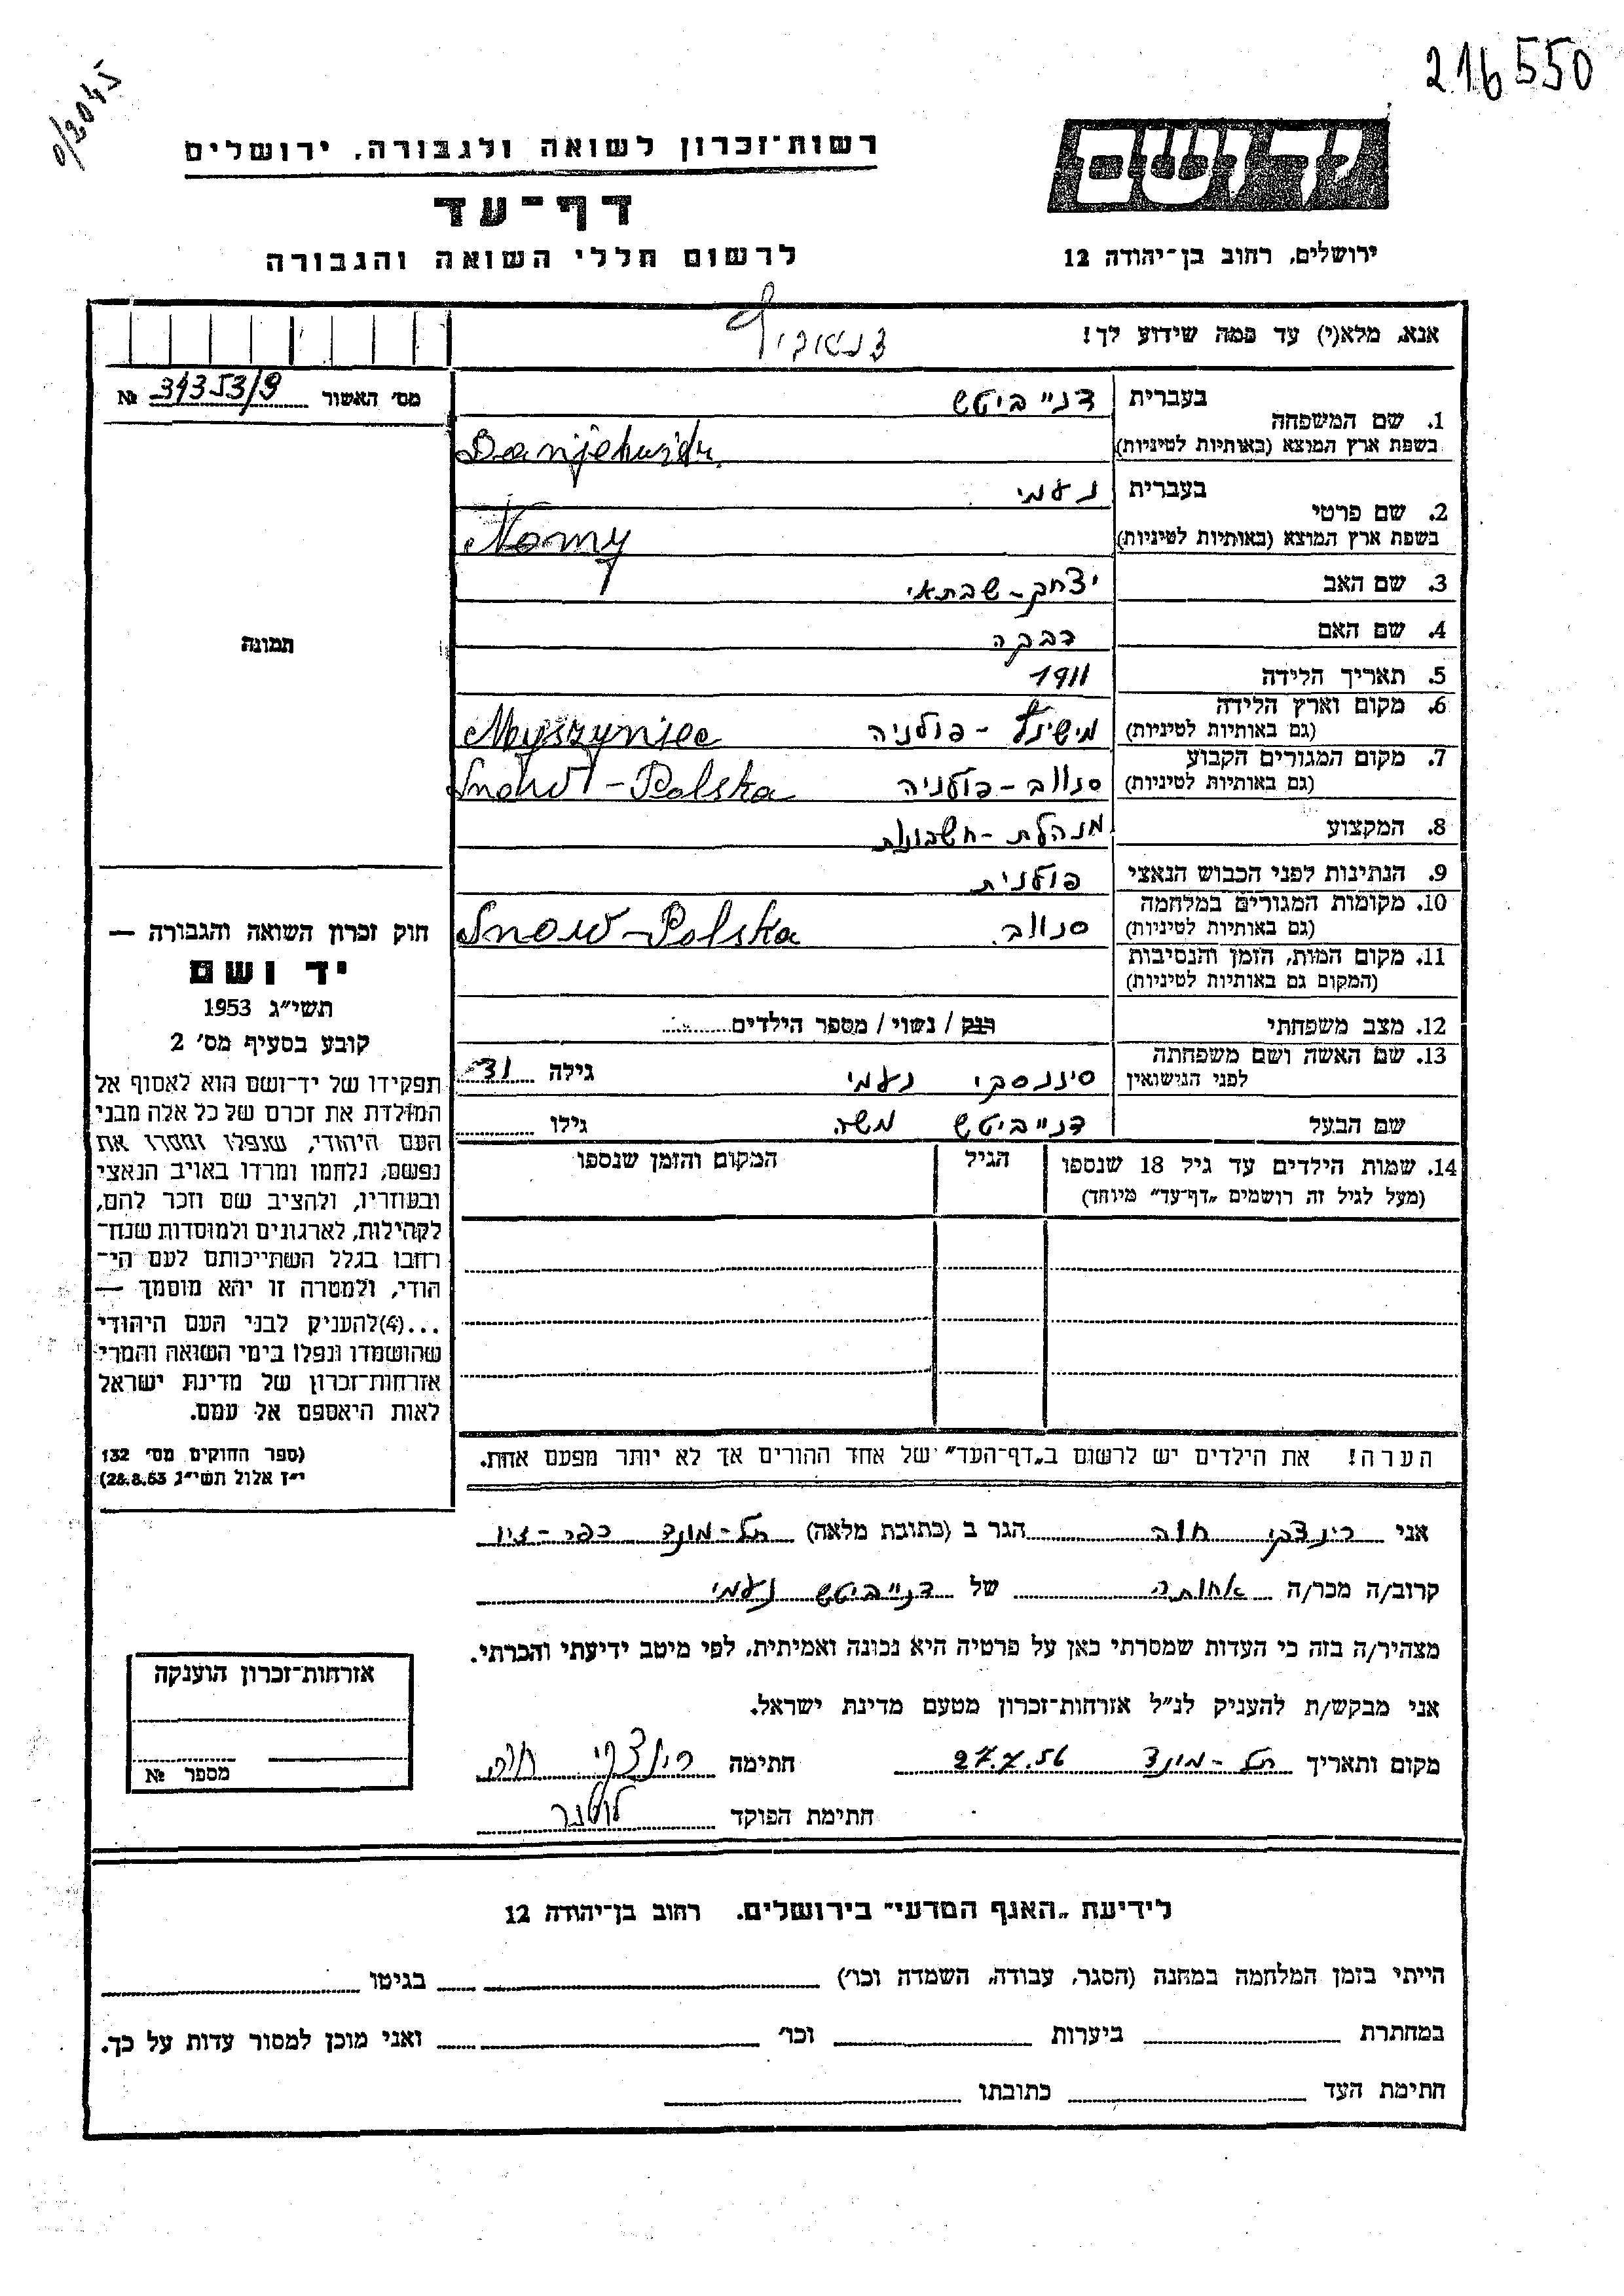 216550
0/2045
יד ושם
רשות־זכרון לשואה ולגבורה, ירושלים
דף־עד
לרשום חללי השואה והגבורה
ירושלים, רחוב בן־יהודה 12
אנא, מלא(י) עד כמה שידוע לך!
מס׳ האשור № 34353/9
1. שם המשפחה
בעברית דנייביטש
בשפת ארץ המוצא (באותיות לטיניות)
2. שם פרטי
בעברית נעמי
בשפת ארץ המוצא (באותיות לטיניות) Nomy
3. שם האב יצחק-שבתאי
4. שם האם רבקה
5. תאריך הלידה 1911
6. מקום וארץ הלידה
(גם באותיות לטיניות) - פולניה Myszyniec
7. מקום המגורים הקבוע
(גם באותיות לטיניות) סנווב-פולניה - Polska
8. המקצוע מנהלת-חשבונות
9. הנתינות לפני הכבוש הנאצי פולנית
10. מקומות המגורים במלחמה
(גם באותיות לטיניות) סנווב. Snow-Polska
11. מקום המות, הזמן והנסיבות
(המקום גם באותיות לטיניות)
12. מצב משפחתי רווק / נשוי / מספר הילדים
13. שם האשה ושם משפחתה
לפני הנישואין נעמי גילה 31
שם הבעל דנייביטש משה גילו
14. שמות הילדים עד גיל 18 שנספו
(מעל לגיל זה רושמים „דף־עד״ מיוחד)
הגיל
המקום והזמן שנספו
תמונה
חוק זכרון השואה והגבורה —
יד ושם
תשי״ג 1953
קובע בסעיף מס׳ 2
תפקידו של יד־ושם הוא לאסוף אל
המולדת את זכרם של כל אלה מבני
העם היהודי, שנפלו ומסרו את
נפשם, נלחמו ומרדו באויב הנאצי
ובעוזריו, ולהציב שם וזכר להם,
לקהילות, לארגונים ולמוסדות שנח־
רחבו בגלל השתייכותם לעם הי־
הודי, ולמטרה זו יהא מוסמך —
...(4) להעניק לבני העם היהודי
שהושמדו ונפלו בימי השואה והמרי
אזרחות־זכרון של מדינת ישראל
לאות היאספם אל עמם.
(ספר החוקים מס׳ 132
י״ז אלול תשי״ג, 28.8.53)
הערה! את הילדים יש לרשום ב„דף־העד״ של אחד ההורים אך לא יותר מפעם אחת.
אני חוה הגר ב (כתובת מלאה) תל-מונד כפר-זיו
קרוב/ה מכר/ה אחותה של דנייביטש נעמי
מצהיר/ה בזה כי העדות שמסרתי כאן על פרטיה היא נכונה ואמיתית, לפי מיטב ידיעתי והכרתי.
אני מבקש/ת להעניק לנ״ל אזרחות־זכרון מטעם מדינת ישראל.
מקום ותאריך תל-מונד 27.7.56 חתימה
חתימת הפוקד
אזרחות־זכרון הוענקה
מספר №
לידיעת „האגף המדעי״ בירושלים, רחוב בן־יהודה 12
הייתי בזמן המלחמה במחנה (הסגר, עבודה, השמדה וכו׳) בגיטו
במחתרת ביערות וכו׳ ואני מוכן למסור עדות על כך.
חתימת העד כתובתו